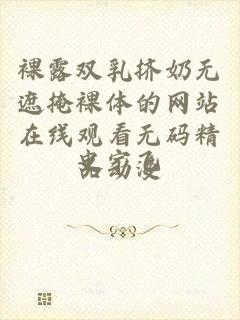 裸露双乳挤奶无
遮掩裸体的网站
在线观看无码精
品动漫